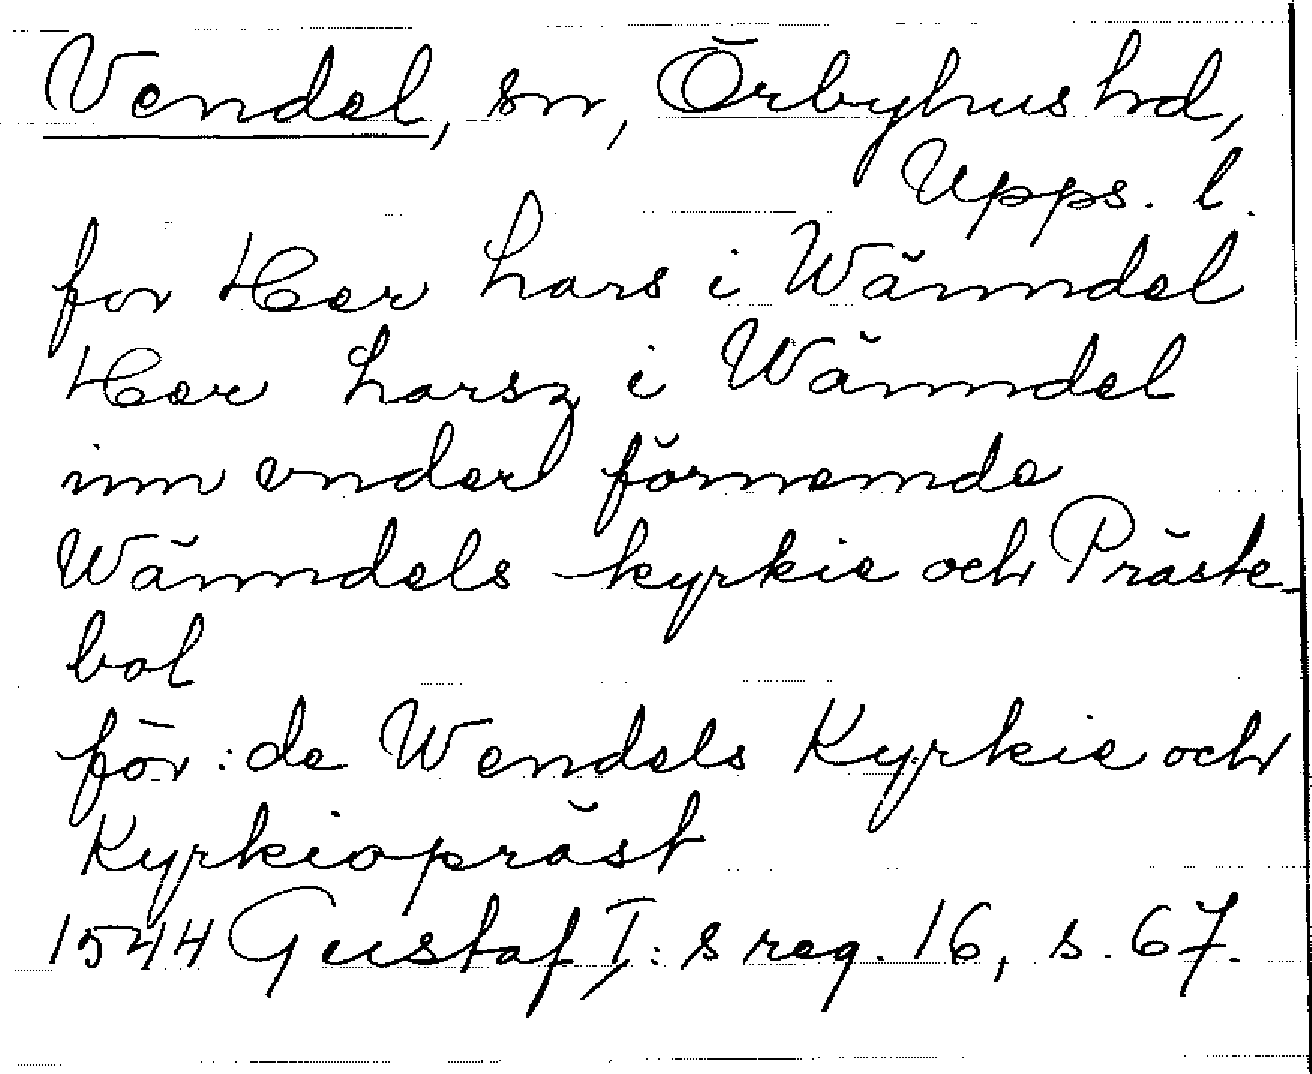 Vendel, sn, Örbyhus hd,
Upps. l.
for Her Lars i Wänndel
Her Larsz i Wänndel
inn vnder förnemde
Wänndels kyrkie och Präste-
bol
för:de Wendels Kyrkie och
Kyrkiopräst
1544 Gustaf I:s reg. 16, s. 67.